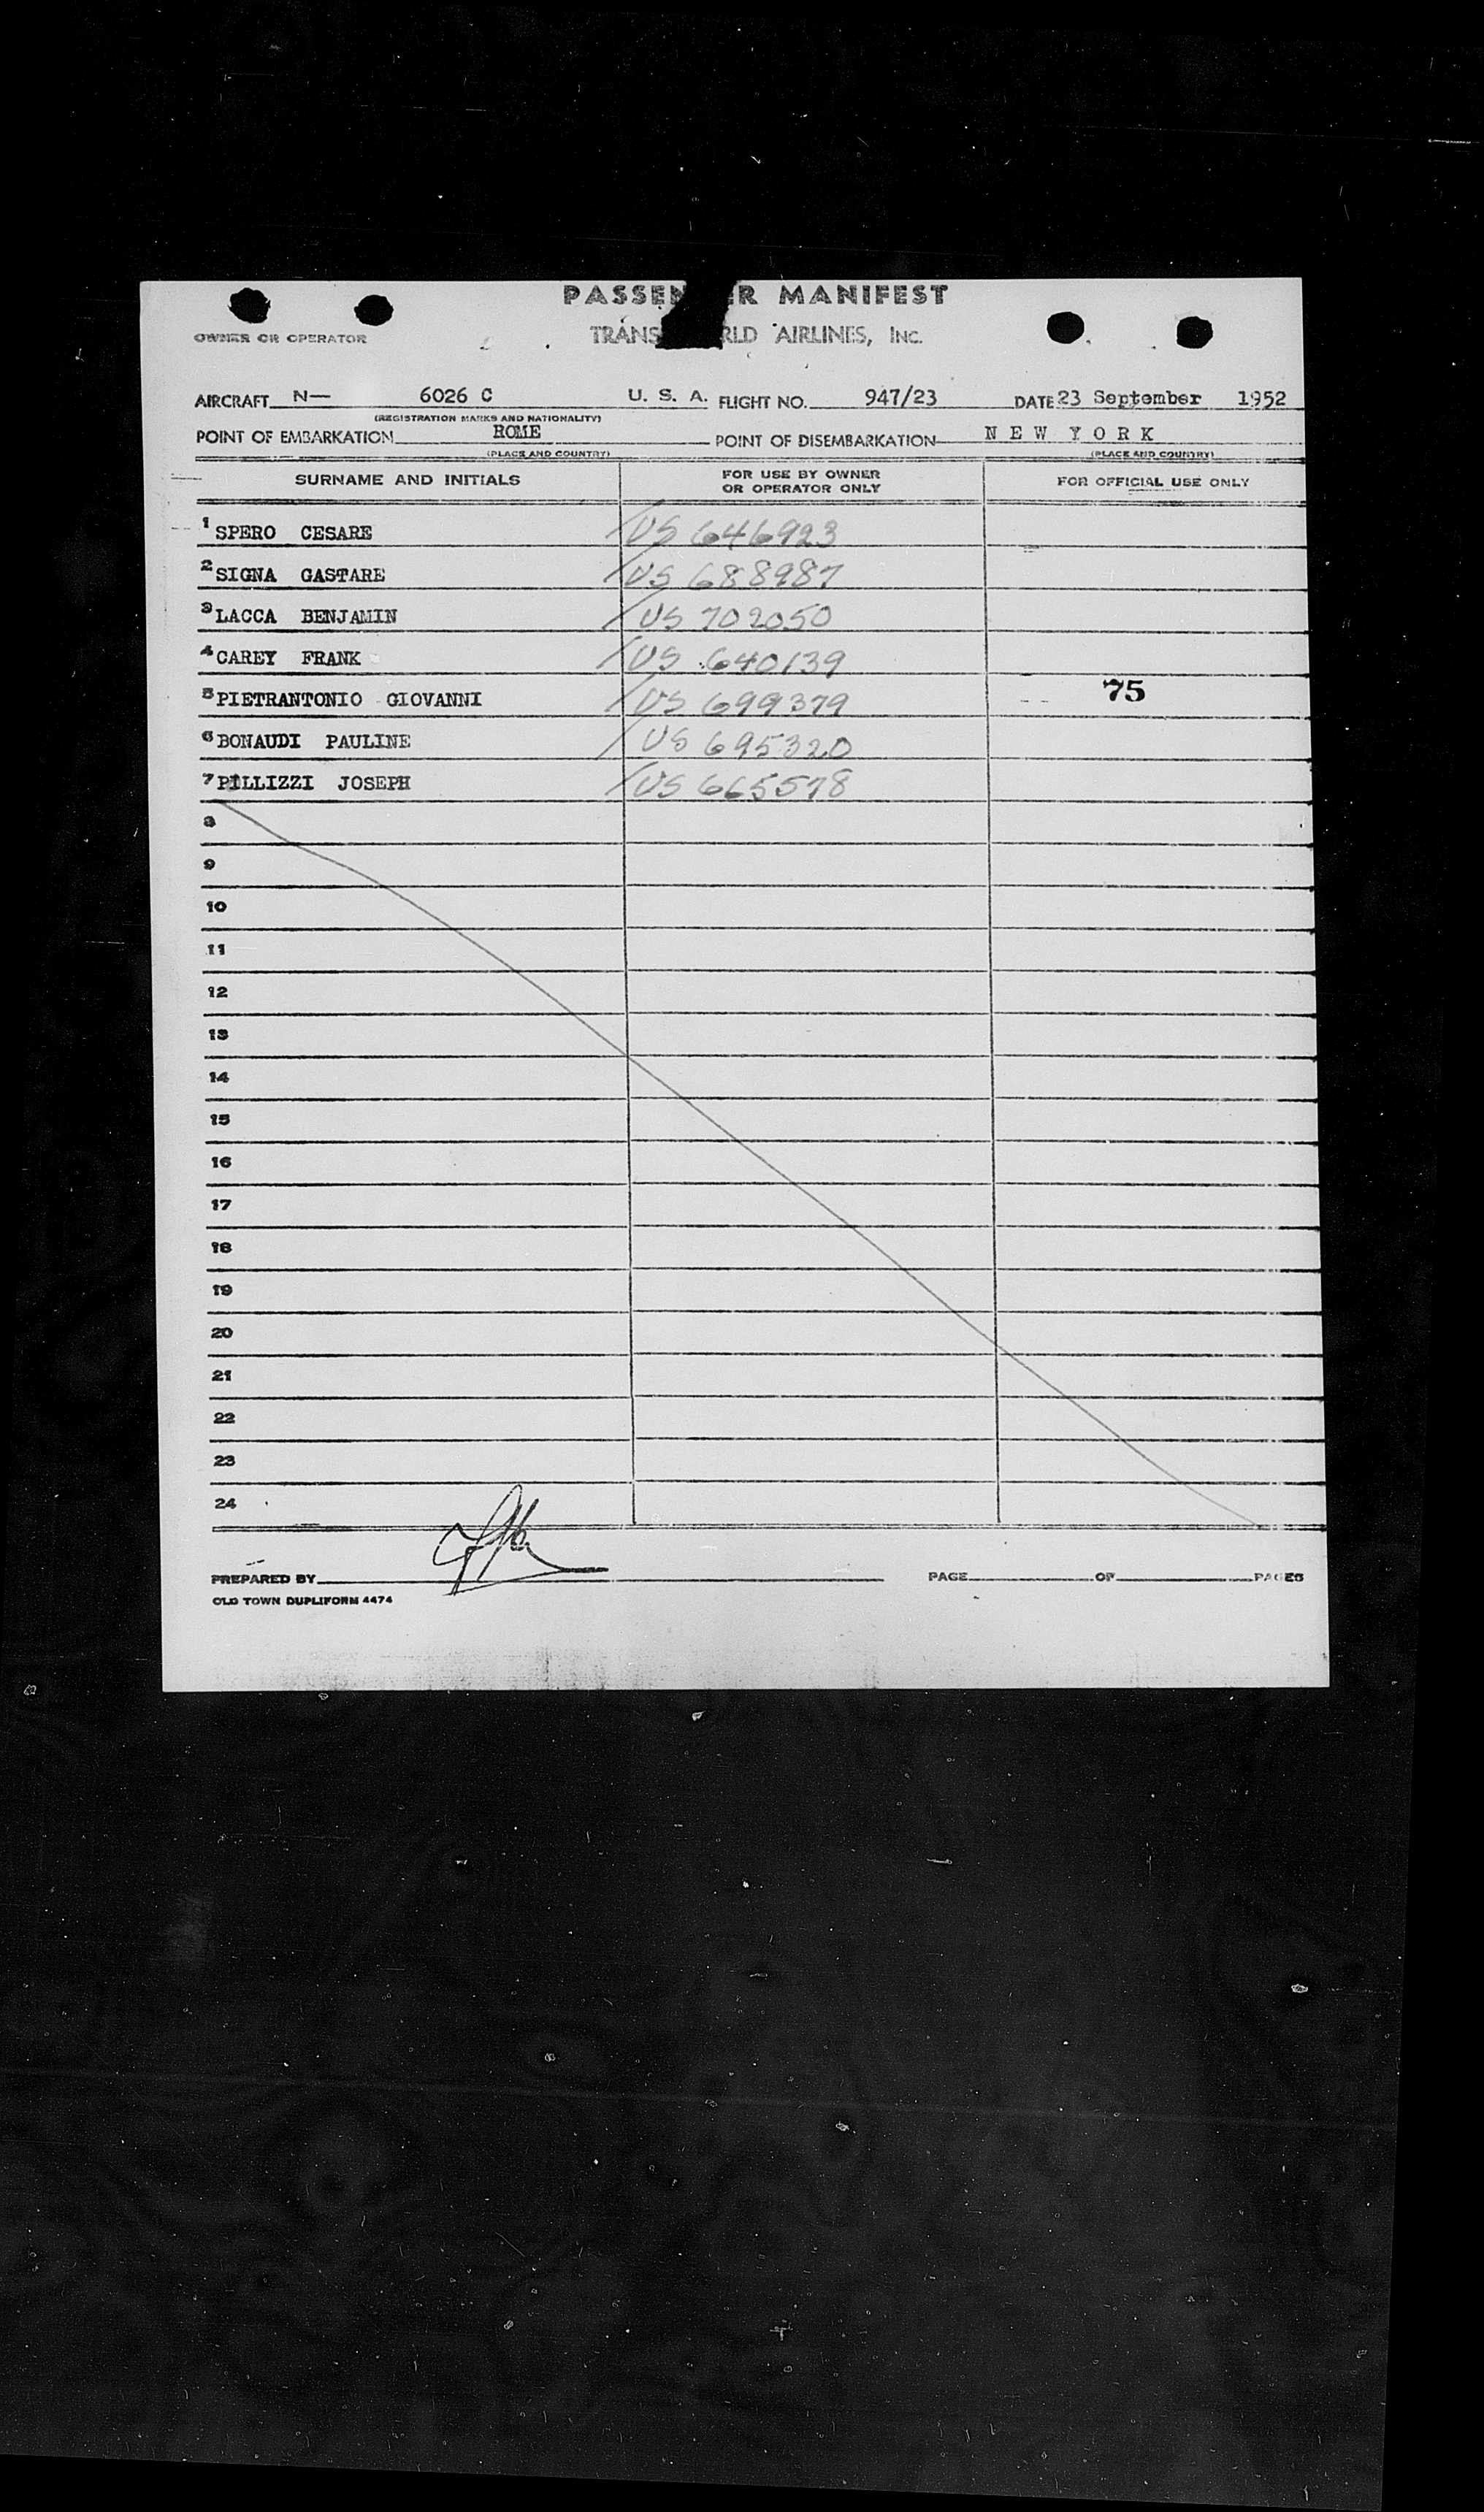 PASSEN R MANIFEST
OWNER OR OPERATOR
TRANS RLD AIRLINES, INC.
AIRCRAFT N— 6026 C U. S. A. FLIGHT NO. 947/23 DATE 23 September 1952
(REGISTRATION MARKS AND NATIONALITY)
POINT OF EMBARKATION ROME POINT OF DISEMBARKATION N E W Y O R K
(PLACE AND COUNTRY) (PLACE AND COUNTRY)
SURNAME AND INITIALS FOR USE BY OWNER OR OPERATOR ONLY FOR OFFICIAL USE ONLY
1 SPERO CESARE /US 646923
2 SIGNA GASTARE /US 688987
3 LACCA BENJAMIN /US 702050
4 CAREY FRANK /US 640139
5 PIETRANTONIO GIOVANNI /US 699379 75
6 BONAUDI PAULINE /US 695320
7 PILLIZZI JOSEPH /US 665578
8
9
10
11
12
13
14
15
16
17
18
19
20
21
22
23
24
PREPARED BY PAGE OF PAGES
OLD TOWN DUPLIFORM 4474